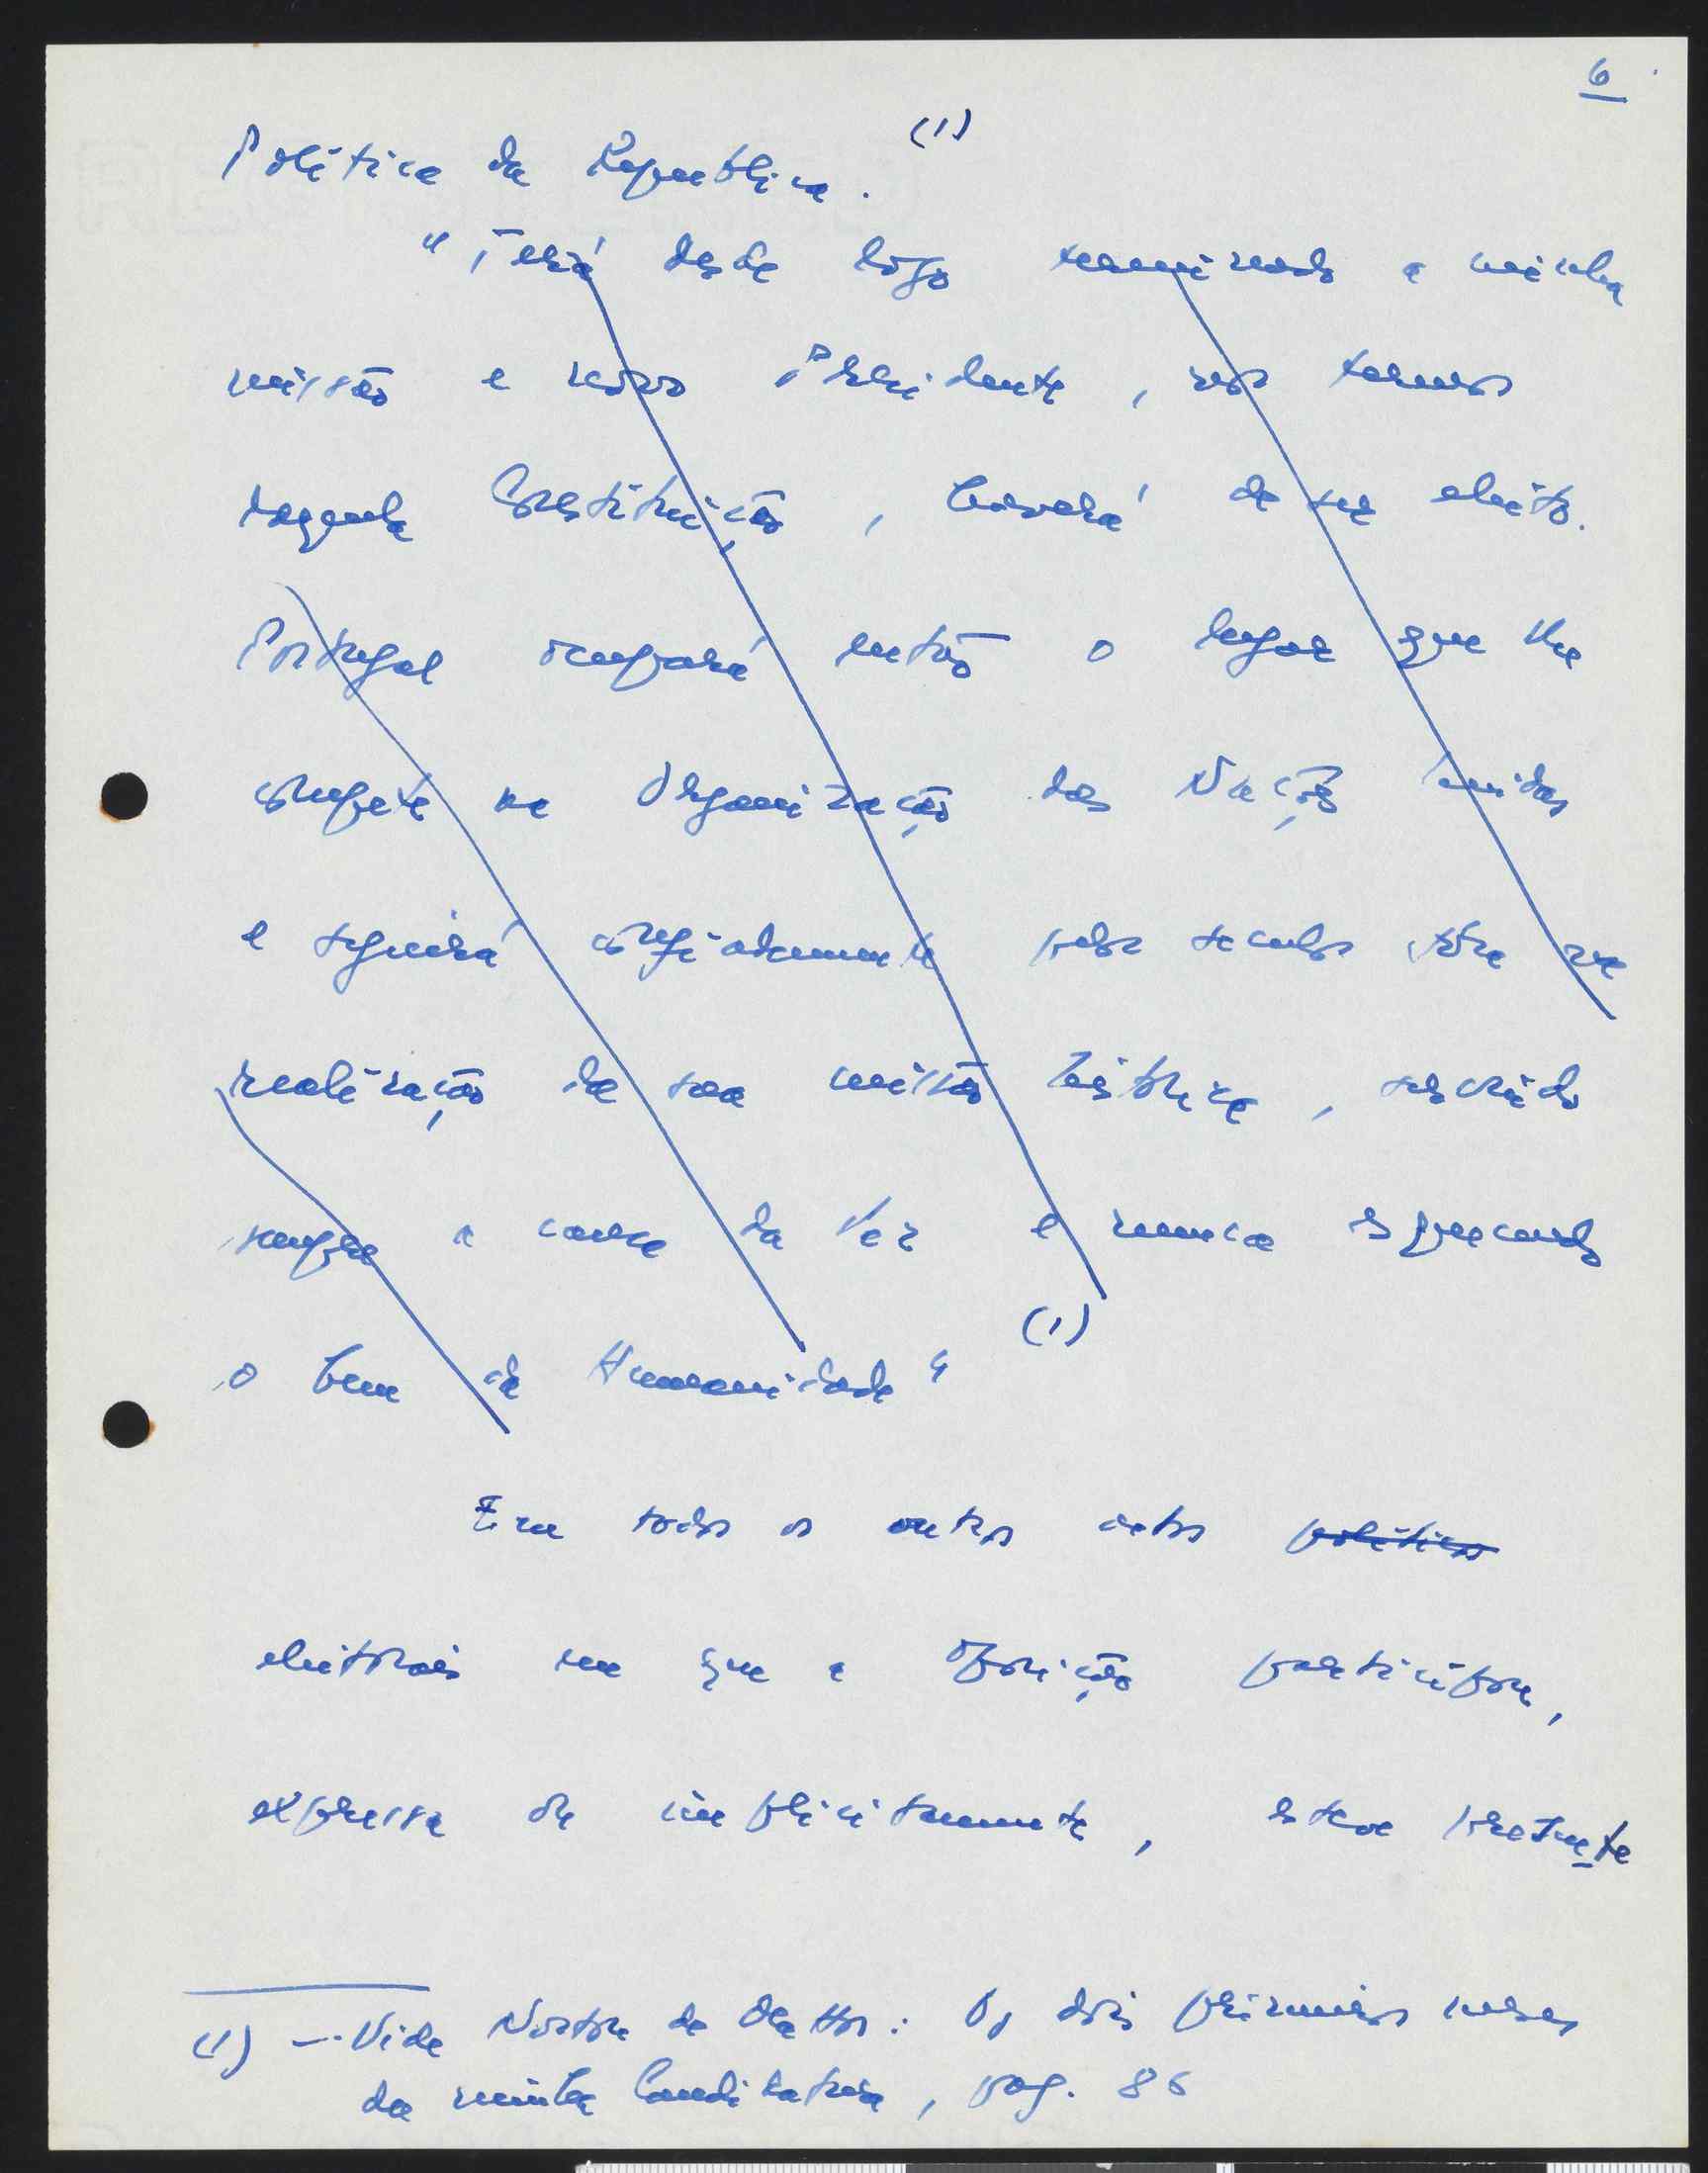 6
Política da Republica. (1)
"Terá desde logo terminado a minha
missão e novo Presidente, nos termos
daquela Constituição, haverá de ser eleito.
Portugal ocupará então o lugar que lhe
compete na Organização das Nações Unidas
e seguirá confiadamente pelos seculos fóra na
realização da sua missão histórica, servindo
sempre a causa da Paz e nunca esquecendo
o bem da Humanidade" (1)
Em todos os outros actos politicos
eleitorais em que a oposição participou,
expressa ou implicitamente, esteve presente
(1) — Vide Norton de Mattos: Os dois primeiros meses
da minha Candidatura, pag. 86